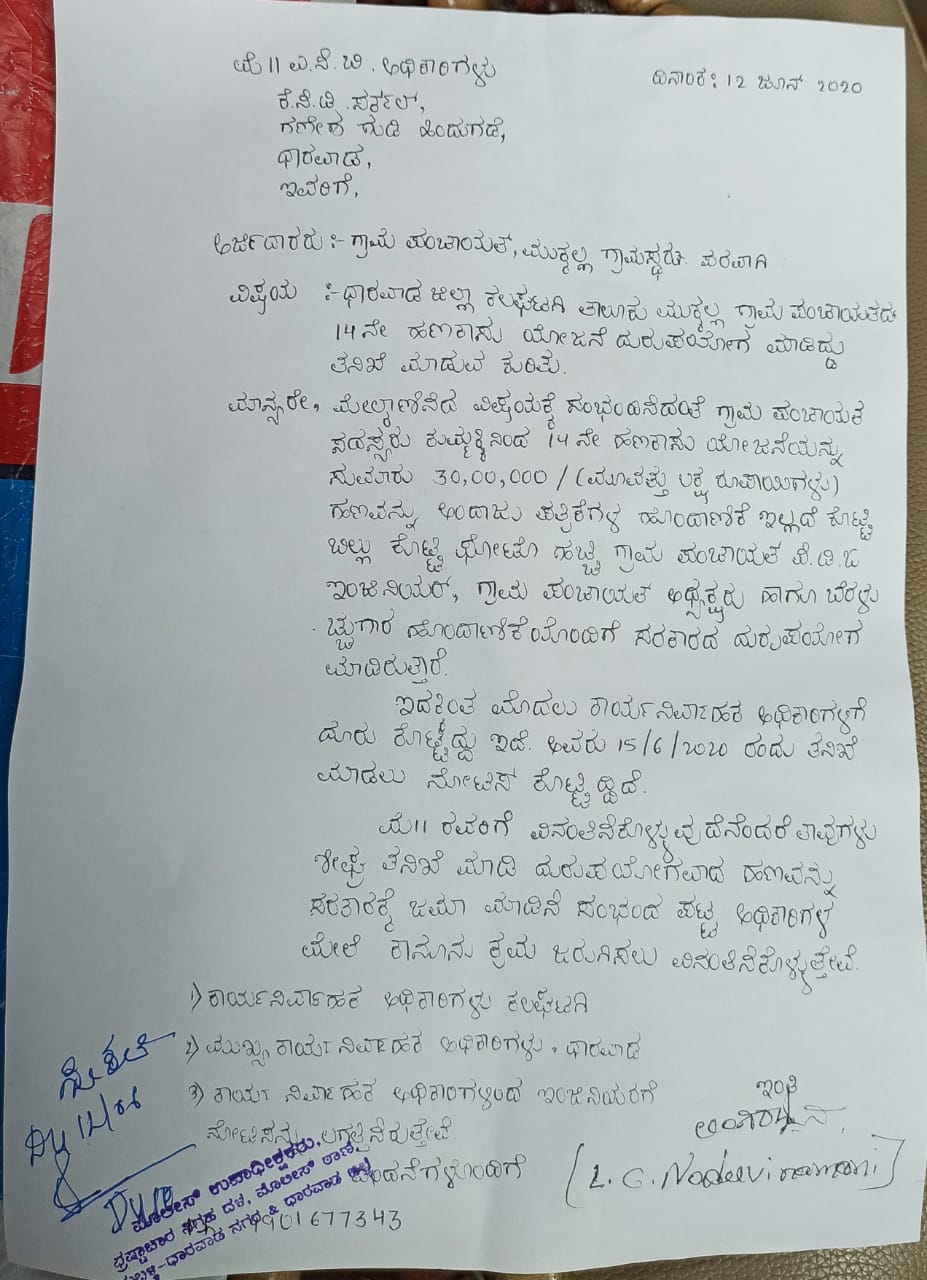 ಮೆ॥ ಎ.ಸಿ.ಬಿ. ಅಧಿಕಾರಿಗಳು
ದಿನಾಂಕ: 12 ಜೂನ್ 2020
ಕೆ.ಸಿ.ಡಿ. ಸರ್ಕಲ್,
ಗಣೇಶ ಗುಡಿ ಹಿಂದುಗಡೆ,
ಧಾರವಾಡ,
ಇವರಿಗೆ,
ಅರ್ಜಿದಾರರು :- ಗ್ರಾಮ ಪಂಚಾಯತ್, ಮುಕ್ಕಲ್ಲ ಗ್ರಾಮಸ್ಥರ ಪರವಾಗಿ
ವಿಷಯ :- ಧಾರವಾಡ ಜಿಲ್ಲಾ ಕಲಘಟಗಿ ತಾಲೂಕು ಮುಕ್ಕಲ್ಲ ಗ್ರಾಮ ಪಂಚಾಯತದ
14 ನೇ ಹಣಕಾಸು ಯೋಜನೆ ದುರುಪಯೋಗ ಮಾಡಿದ್ದು
ತನಿಖೆ ಮಾಡುವ ಕುರಿತು.
ಮಾನ್ಯರೇ, ಮೇಲ್ಕಾಣಿಸಿದ ವಿಷಯಕ್ಕೆ ಸಂಭಂದಿಸಿದಂತೆ ಗ್ರಾಮ ಪಂಚಾಯತ
ಸದಸ್ಯರು ಕುಮ್ಮಕ್ಕಿನಿಂದ 14 ನೇ ಹಣಕಾಸು ಯೋಜನೆಯನ್ನು
ಸುಮಾರು 30,00,000 / (ಮೂವತ್ತು ಲಕ್ಷ ರೂಪಾಯಿಗಳು)
ಹಣವನ್ನು ಅಂದಾಜು ಪತ್ರಿಕೆಗಳ ಹೊಂದಾಣಿಕೆ ಇಲ್ಲದೆ ಕೊಟ್ಟಿ
ಬಿಲ್ಲು ಕೊಟ್ಟಿ ಫೋಟೊ ಹಚ್ಚಿ ಗ್ರಾಮ ಪಂಚಾಯತ ಪಿ.ಡಿ.ಓ
ಇಂಜಿನಿಯರ್, ಗ್ರಾಮ ಪಂಚಾಯತ್ ಅಧ್ಯಕ್ಷರು ಹಾಗೂ ಬೆರಳು
ಚ್ಚುಗಾರ ಹೊಂದಾಣಿಕೆಯೊಂದಿಗೆ ಸರಕಾರದ ದುರುಪಯೋಗ
ಮಾಡಿರುತ್ತಾರೆ.
ಇದಕಿಂತ ಮೊದಲು ಕಾರ್ಯನಿರ್ವಾಹಕ ಅಧಿಕಾರಿಗಳಿಗೆ
ದೂರು ಕೊಟ್ಟಿದ್ದು ಇದೆ. ಅವರು 15/6/2020 ರಂದು ತನಿಖೆ
ಮಾಡಲು ನೋಟಿಸ್ ಕೊಟ್ಟಿದ್ದಿದೆ.
ಮೆ॥ ರವರಿಗೆ ವಿನಂತಿಸಿಕೊಳ್ಳುವುದೆನೆಂದರೆ ತಾವುಗಳು
ಶೀಘ್ರ ತನಿಖೆ ಮಾಡಿ ದುರುಪಯೋಗವಾದ ಹಣವನ್ನು
ಸರಕಾರಕ್ಕೆ ಜಮಾ ಮಾಡಿಸಿ ಸಂಭಂದ ಪಟ್ಟ ಅಧಿಕಾರಿಗಳ
ಮೇಲೆ ಕಾನೂನು ಕ್ರಮ ಜರುಗಿಸಲು ವಿನಂತಿಸಿಕೊಳ್ಳುತ್ತೇವೆ.
1) ಕಾರ್ಯನಿರ್ವಾಹಕ ಅಧಿಕಾರಿಗಳು ಕಲಘಟಗಿ
2) ಮುಖ್ಯ ಕಾರ್ಯ ನಿರ್ವಾಹಕ ಅಧಿಕಾರಿಗಳು, ಧಾರವಾಡ
3) ಕಾರ್ಯ ನಿರ್ವಾಹಕ ಅಧಿಕಾರಿಗಳಿಂದ ಇಂಜಿನಿಯರಿಗೆ
ನೋಟಿಸನ್ನು ಲಗತ್ತಿಸಿರುತ್ತೇವೆ
ಇಂತಿ
ವಂದನೆಗಳೊಂದಿಗೆ
(L. G. Nadeevinamani)
9901677343
ಪೊಲೀಸ್ ಉಪಾಧೀಕ್ಷಕರು,
ಭ್ರಷ್ಟಾಚಾರ ನಿಗ್ರಹ ದಳ, ಪೊಲೀಸ್ ಠಾಣೆ
ಹುಬ್ಬಳ್ಳಿ-ಧಾರವಾಡ ನಗರ & ಧಾರವಾಡ ಜಿಲ್ಲೆ